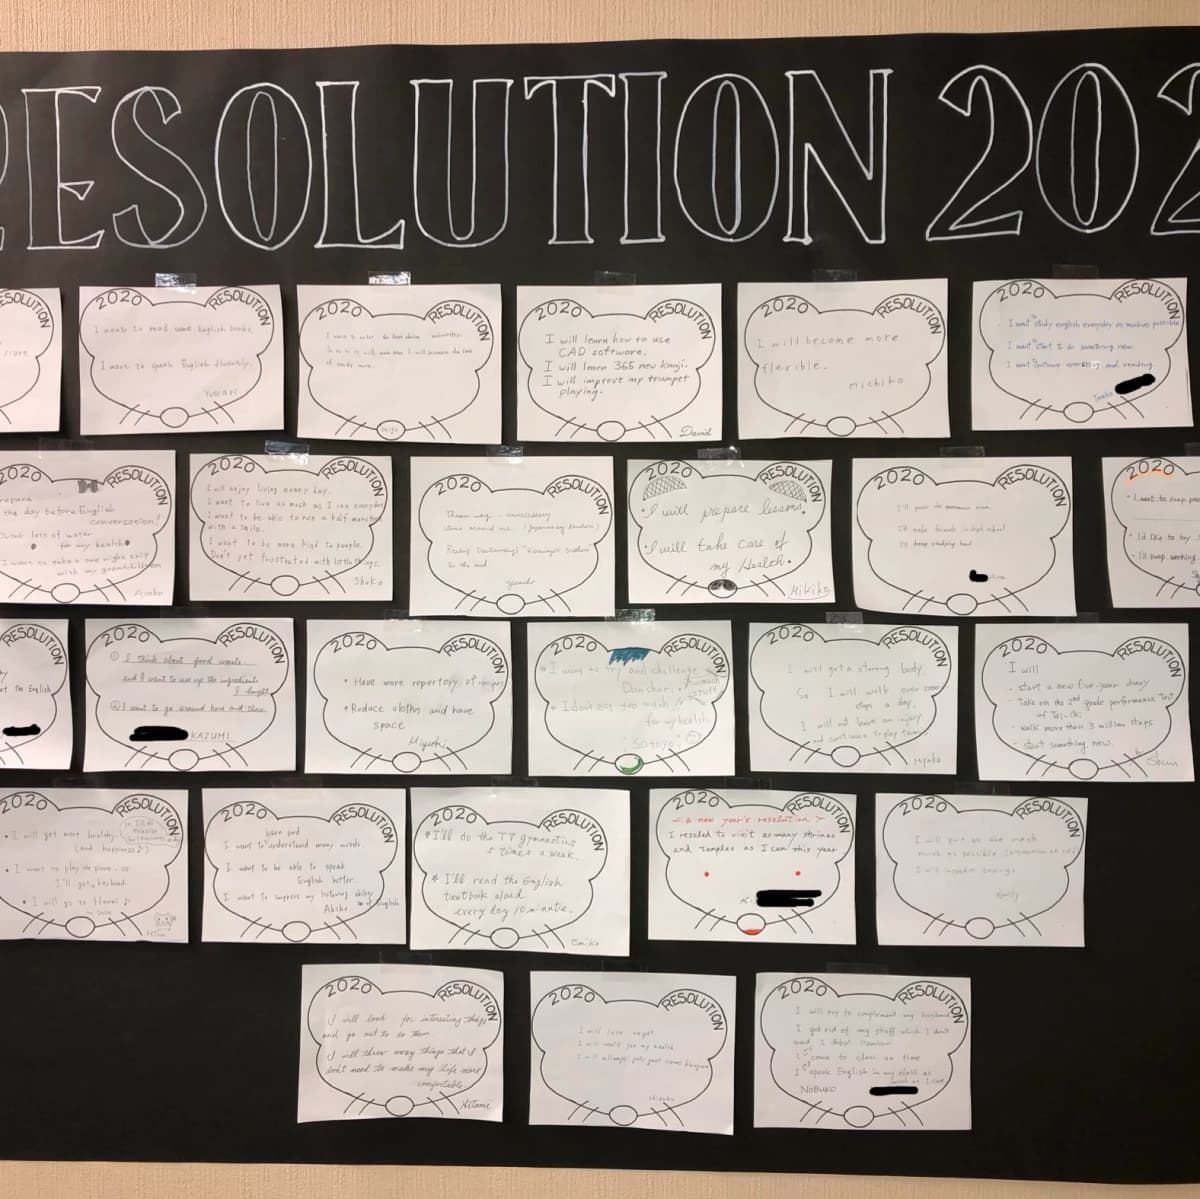 RESOLUTION 202
RESOLUTION
2020 RESOLUTION
I want to read some English books.
I want to speak English fluently.
Yukari
2020 RESOLUTION
2020 RESOLUTION
I will learn how to use
CAD software.
I will learn 365 new kanji.
I will improve my trumpet
playing.
David
2020 RESOLUTION
I will become more
flexible.
Michiko
2020 RESOLUTION
I want to study english everyday as much as possible
I want to start to do something new
I want to continue exercising and reading.
2020 RESOLUTION
prepare
the day before English
conversation!
Drink lots of water
for my health
I want to take a one night ship
with my grandchildren
Ayako
2020 RESOLUTION
I will enjoy living every day.
I want to live as much as I can everyday
I want to be able to run a half marathon
with a smile.
I want to be more kind to people.
Don't get frustrated with little things.
Shoko
2020 RESOLUTION
Throw away unnecessary
items around me
2020 RESOLUTION
I will prepare lessons.
I will take care of
my Health.
Mikiko
2020 RESOLUTION
I'll make friends in high school
I'll keep studying hard
2020
I want to keep
I'd like to try
I'll keep working
RESOLUTION
at the English
2020 RESOLUTION
① I think about food waste.
and I want to use up the ingredients
I bought
② I want to go around here and there.
KAZUMI
2020 RESOLUTION
Have more repertory of recipes
Reduce cloths and have
space
Miyuki
2020 RESOLUTION
I want to try and challenge
Danshari
I don't eat too much
for my health
Satoyo
2020 RESOLUTION
I will get a strong body
So I will walk over
steps a day.
I will not have an injury
and continue to play tennis
Miyako
2020 RESOLUTION
I will
- start a new five-year diary
- take on the 2nd grade performance Test
of Tai-chi
- walk more than 3 million steps
- start something new.
2020 RESOLUTION
I will get more healthy.
(and happiness♪)
I want to play the piano. So
I'll get a keyboard.
I will go to Hawaii♪
in 2020
2020 RESOLUTION
learn and
I want to understand many words.
I want to be able to speak
English better.
I want to improve my listening ability
of English
Akiko
2020 RESOLUTION
* I'll do the TV gymnastics
5 times a week.
* I'll read the English
textbook aloud
every day 10 minutie.
Emiko
2020 RESOLUTION
<a new year's resolution>
I resoled to visit as many shrines
and temples as I can this year
K.
2020 RESOLUTION
I will
much as possible
Emily
2020 RESOLUTION
I will look for interesting things
and go out to do them
I will throw away things that I
don't need to make my life more
comfortable.
Hitomi
2020 RESOLUTION
I will
I will walk for my health
I will
Shizuko
2020 RESOLUTION
I will try to compliment my husband
I get rid of my stuff which I don't
need.
I'll come to class on time
I'll speak English in my class as
much as I can
NOBUKO